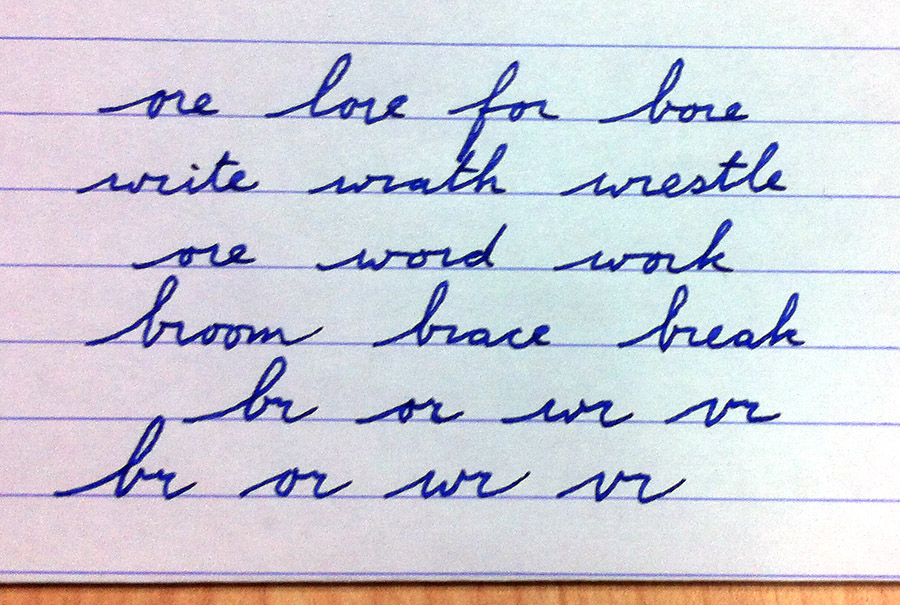 ore lore for bore
write wrath wrestle
ore word work
broom brace break
br or wr vr
br or wr vr